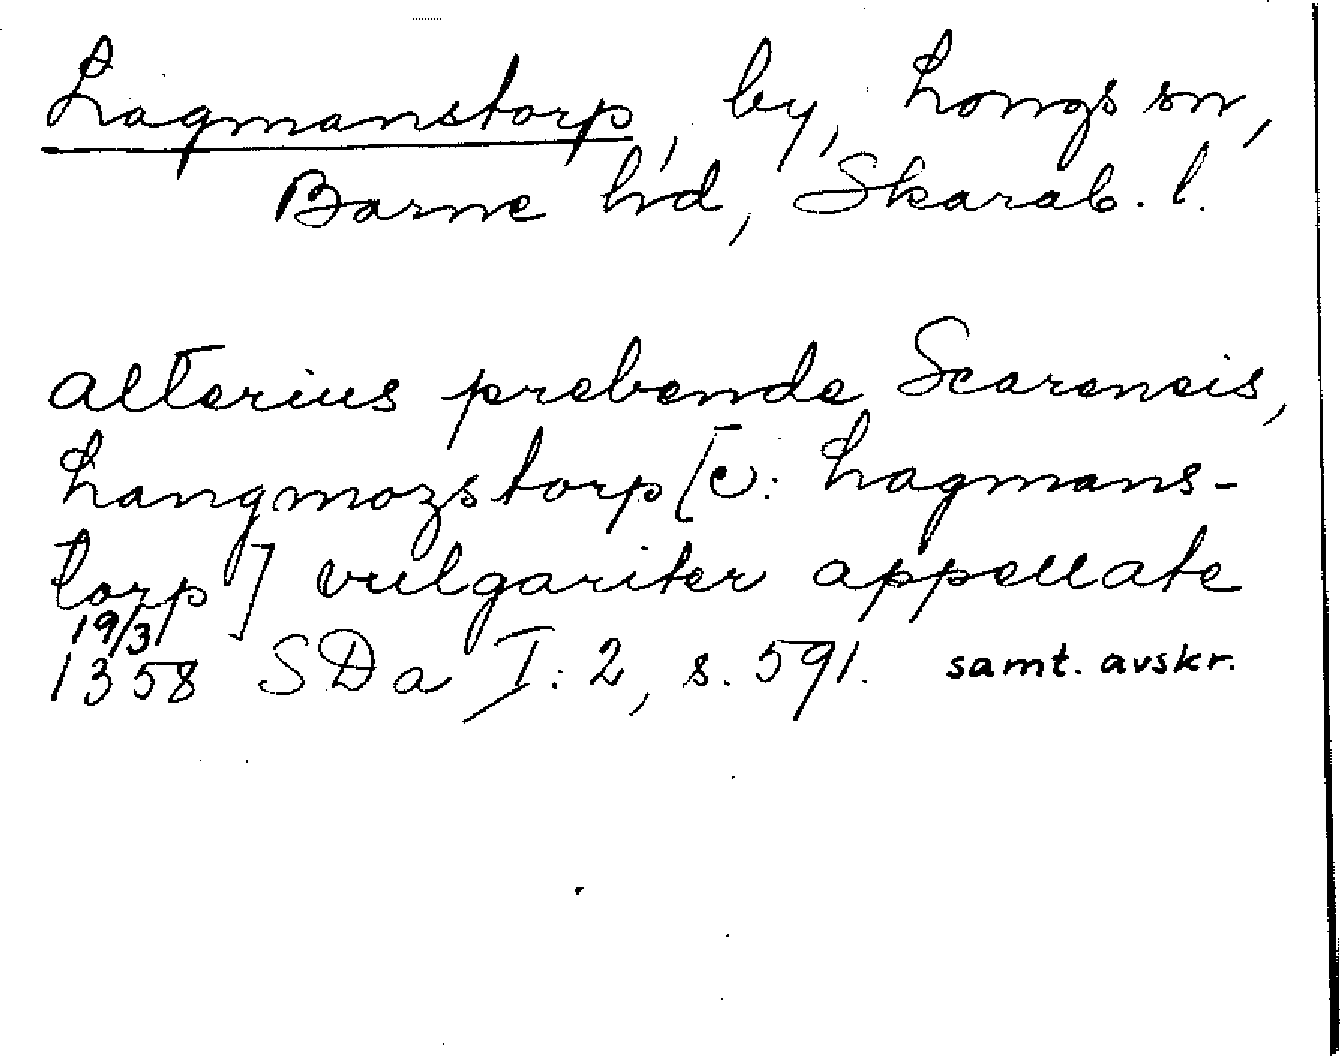 Lagmanstorp, by, Longs sn,
Barne hd, Skarab. l.
alterius prebende Scarensis,
Langmozstorp [ɔ: Lagmans-
torp] vulgariter appellate
19/3
1358 SDa I: 2, s. 591. samt. avskr.